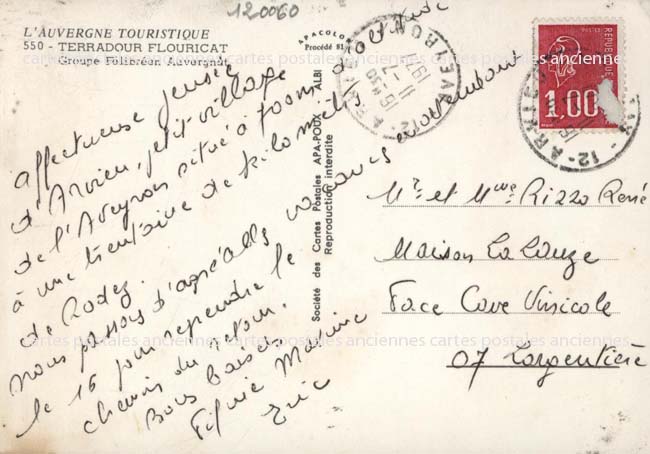 120060
L'AUVERGNE TOURISTIQUE
550 - TERRADOUR FLOURICAT
Groupe Folibréen Auvergnat
APACOLOR
Procédé 81
Affectueuse pensée
d'Arvieu, petit village
de l'Aveyron situé à 700m d'altitude
à une trentaine de kilomètres
de Rodez.
nous passons d'agréables vacances en attendant
le 16 pour reprendre le
chemin du retour.
Bons Baisers
Sylvie Maxime
Eric
Société des Cartes Postales APA-POUX - ALBI
Reproduction interdite
12 AVEYRON
1,00
12 - ARVIEU
Mr et Mme Rizzo René
Maison La Lauze
Face Cave Vinicole
07 Largentière
cartes postales anciennes cartes postales anciennes cartes postales anciennes